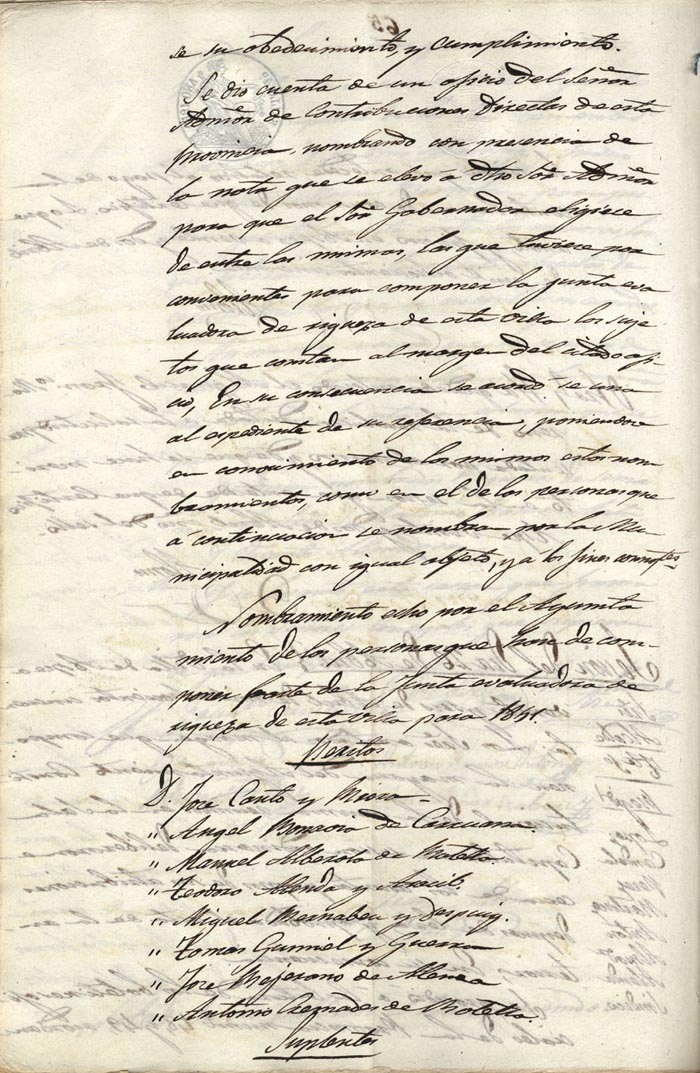 se su obedecimiento, y cumplimiento.
Se dio cuenta de un oficio del Señor
Admor de Contribuciones Directas de esta
provincia, nombrando con presencia de
la nota que se elevo a dho Sor Admor
para que el Sor Gobernador eligiece
de entre los mismos, los que tuviese por
convenientes para componer la junta eva
luadora de riqueza de esta villa los suje
tos que constan al margen del citado ofi
cio, En su consecuencia se acordó se una
al espediente de su referencia, poniendose
en conocimiento de los mismos estos nom
bramientos, como en el de las personas que
a continuacion se nombran por la Mu
nicipalidad con igual objeto, y a los fines
Nombramiento echo por el Ayunta
miento de las personas que han de com-
poner parte de la Junta evaluadora de
riqueza de esta villa para 1851.
Peritos
D. Jose Canto y Mira
" Angel
" Manuel Alberola de
" Teodoro Alenda y
" Miguel Bernabeu y Despuig.
" Tomas Gumiel y Guerra
" Jose Bejerano de Alenda
" Antonio de
Suplentes